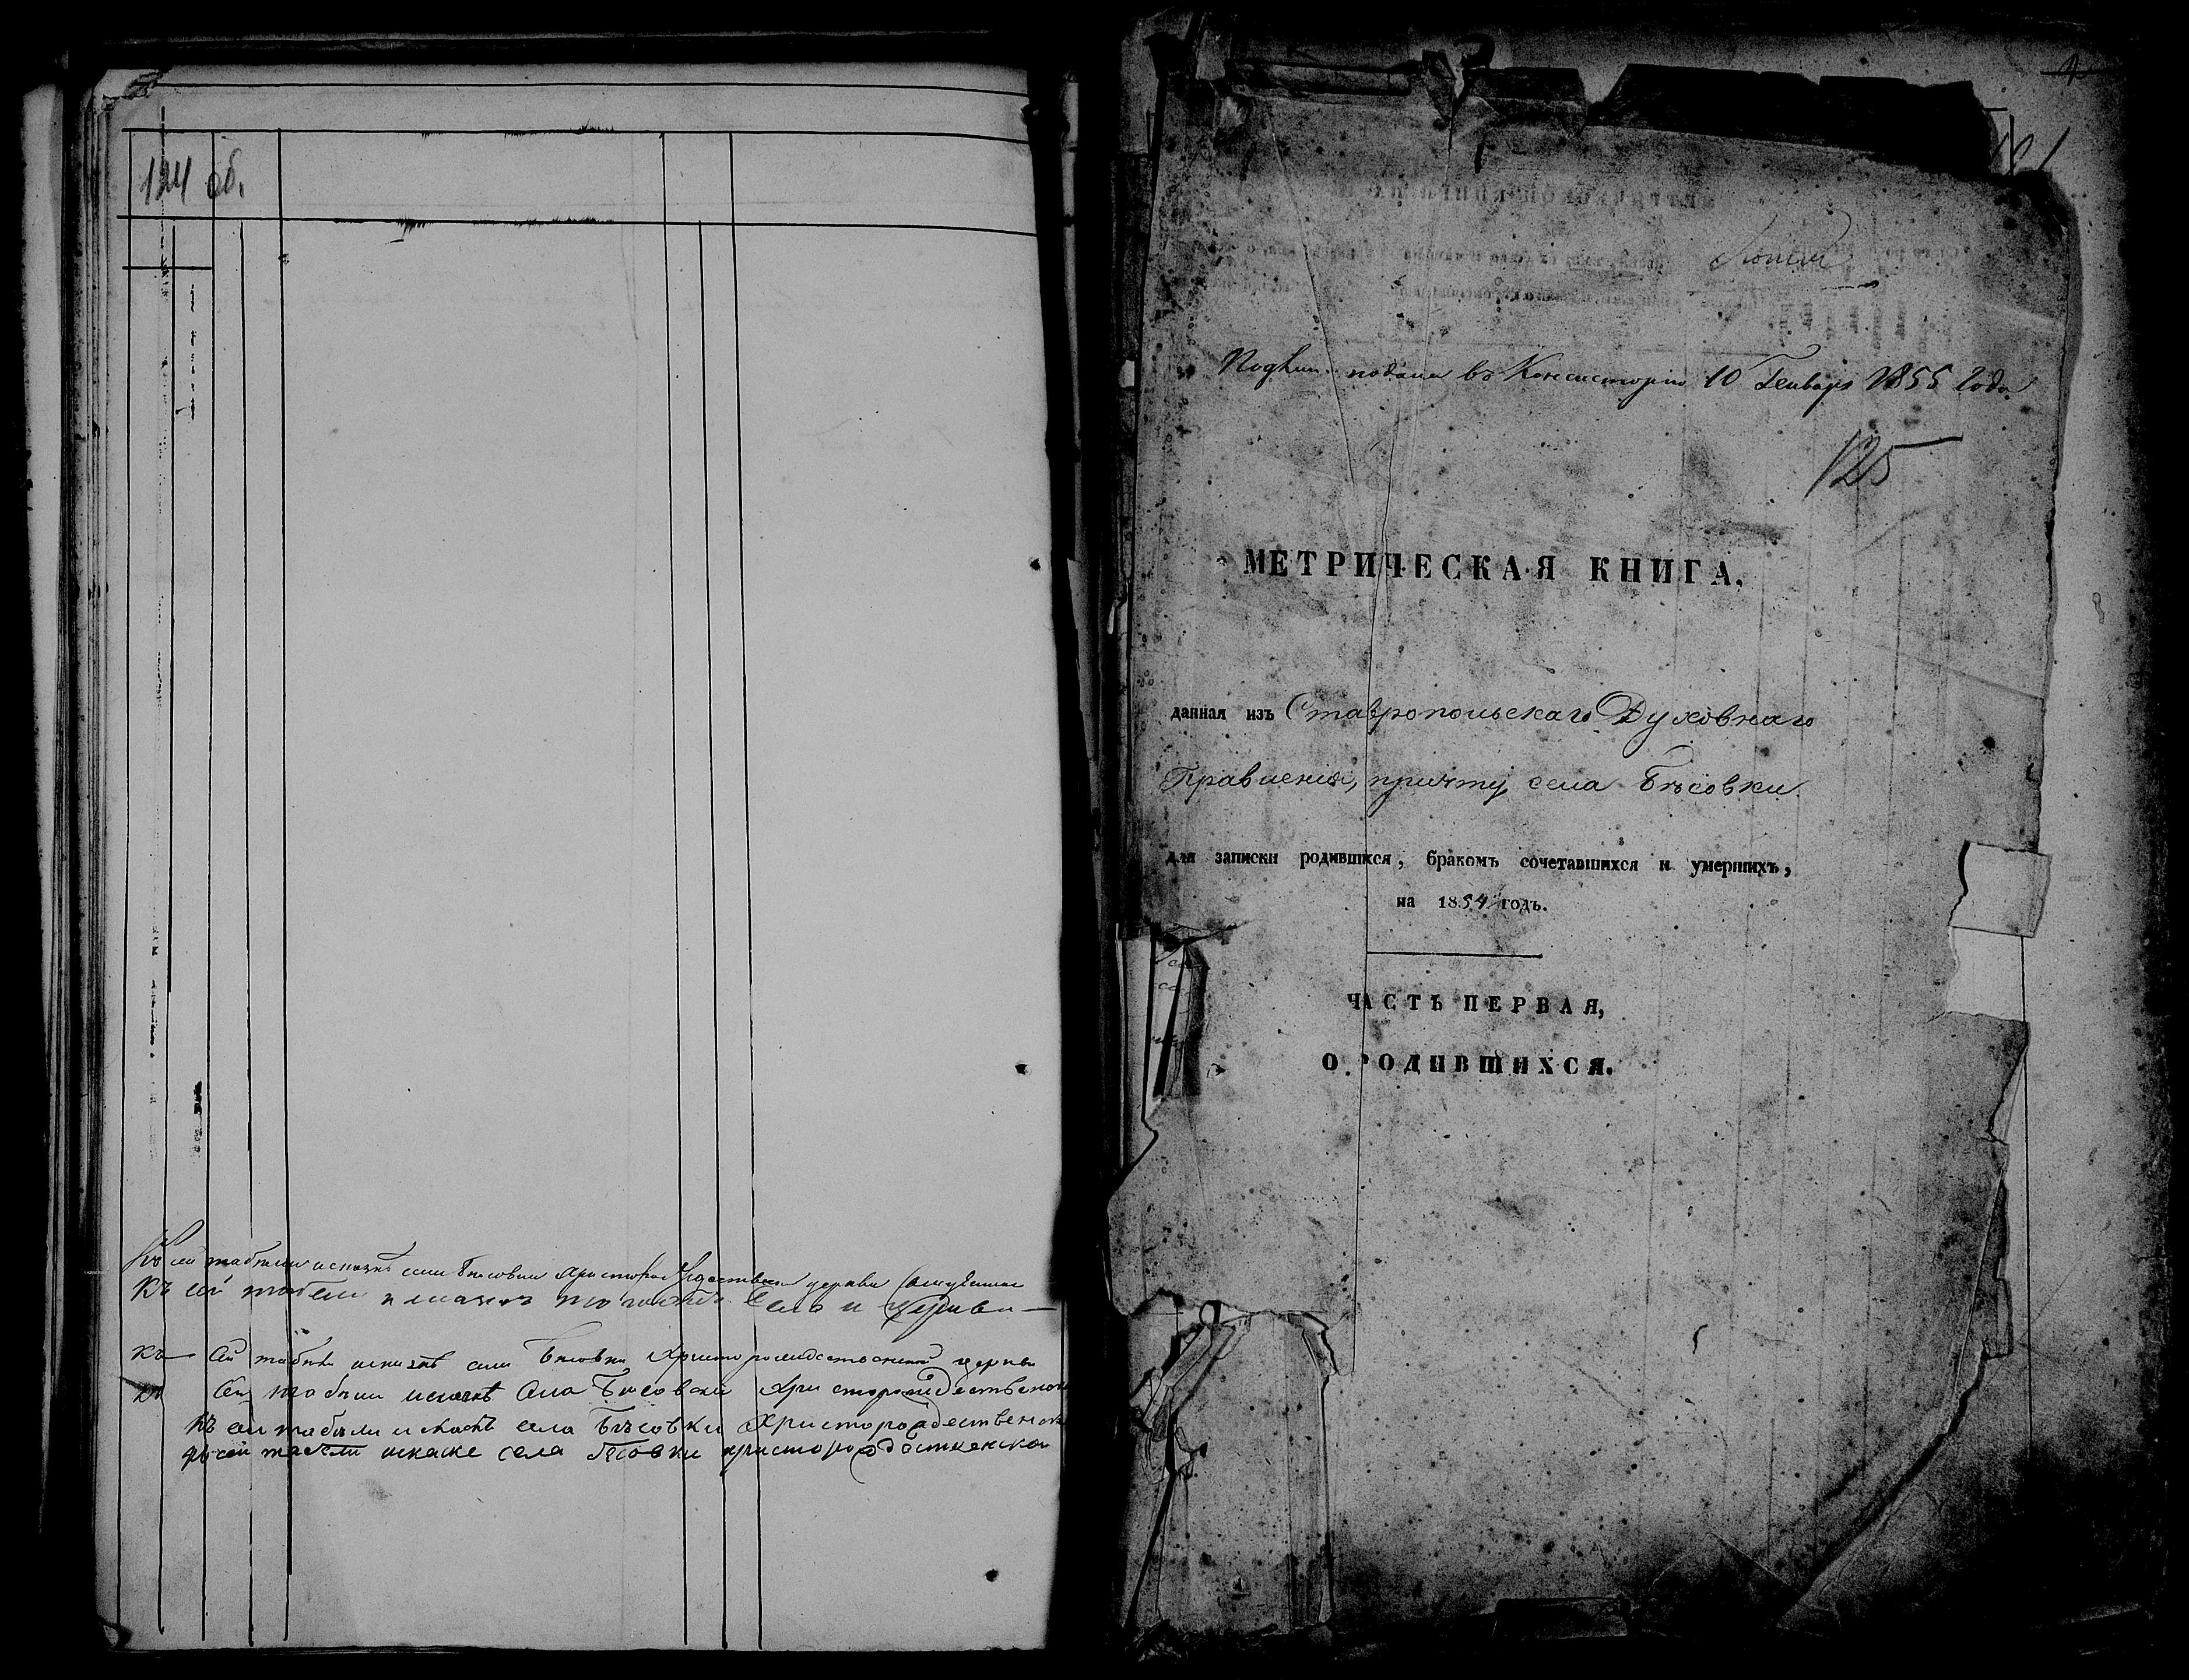 124 об.
Къ сей табели и сказкѣ села Бѣсовки Христорождественской церкви Священникъ
Къ сей табели и сказкѣ того села и церкви
къ сей табели и сказкѣ села Бѣсовки Христорождественской церкви
къ сей табели и сказкѣ села Бѣсовки Христорождественской
къ сей табели и сказкѣ села Бѣсовки Христорождественской
села христо
Копія
подана въ Консисторію 10 Генваря 1855 года
125
МЕТРИЧЕСКАЯ КНИГА,
данная изъ Ставропольскаго Духовнаго
Правленія, причту села Бѣсовки
для записки родившихся, бракомъ сочетавшихся и умершихъ,
на 1854 годъ.
ЧАСТЬ ПЕРВАЯ,
О РОДИВШИХСЯ.